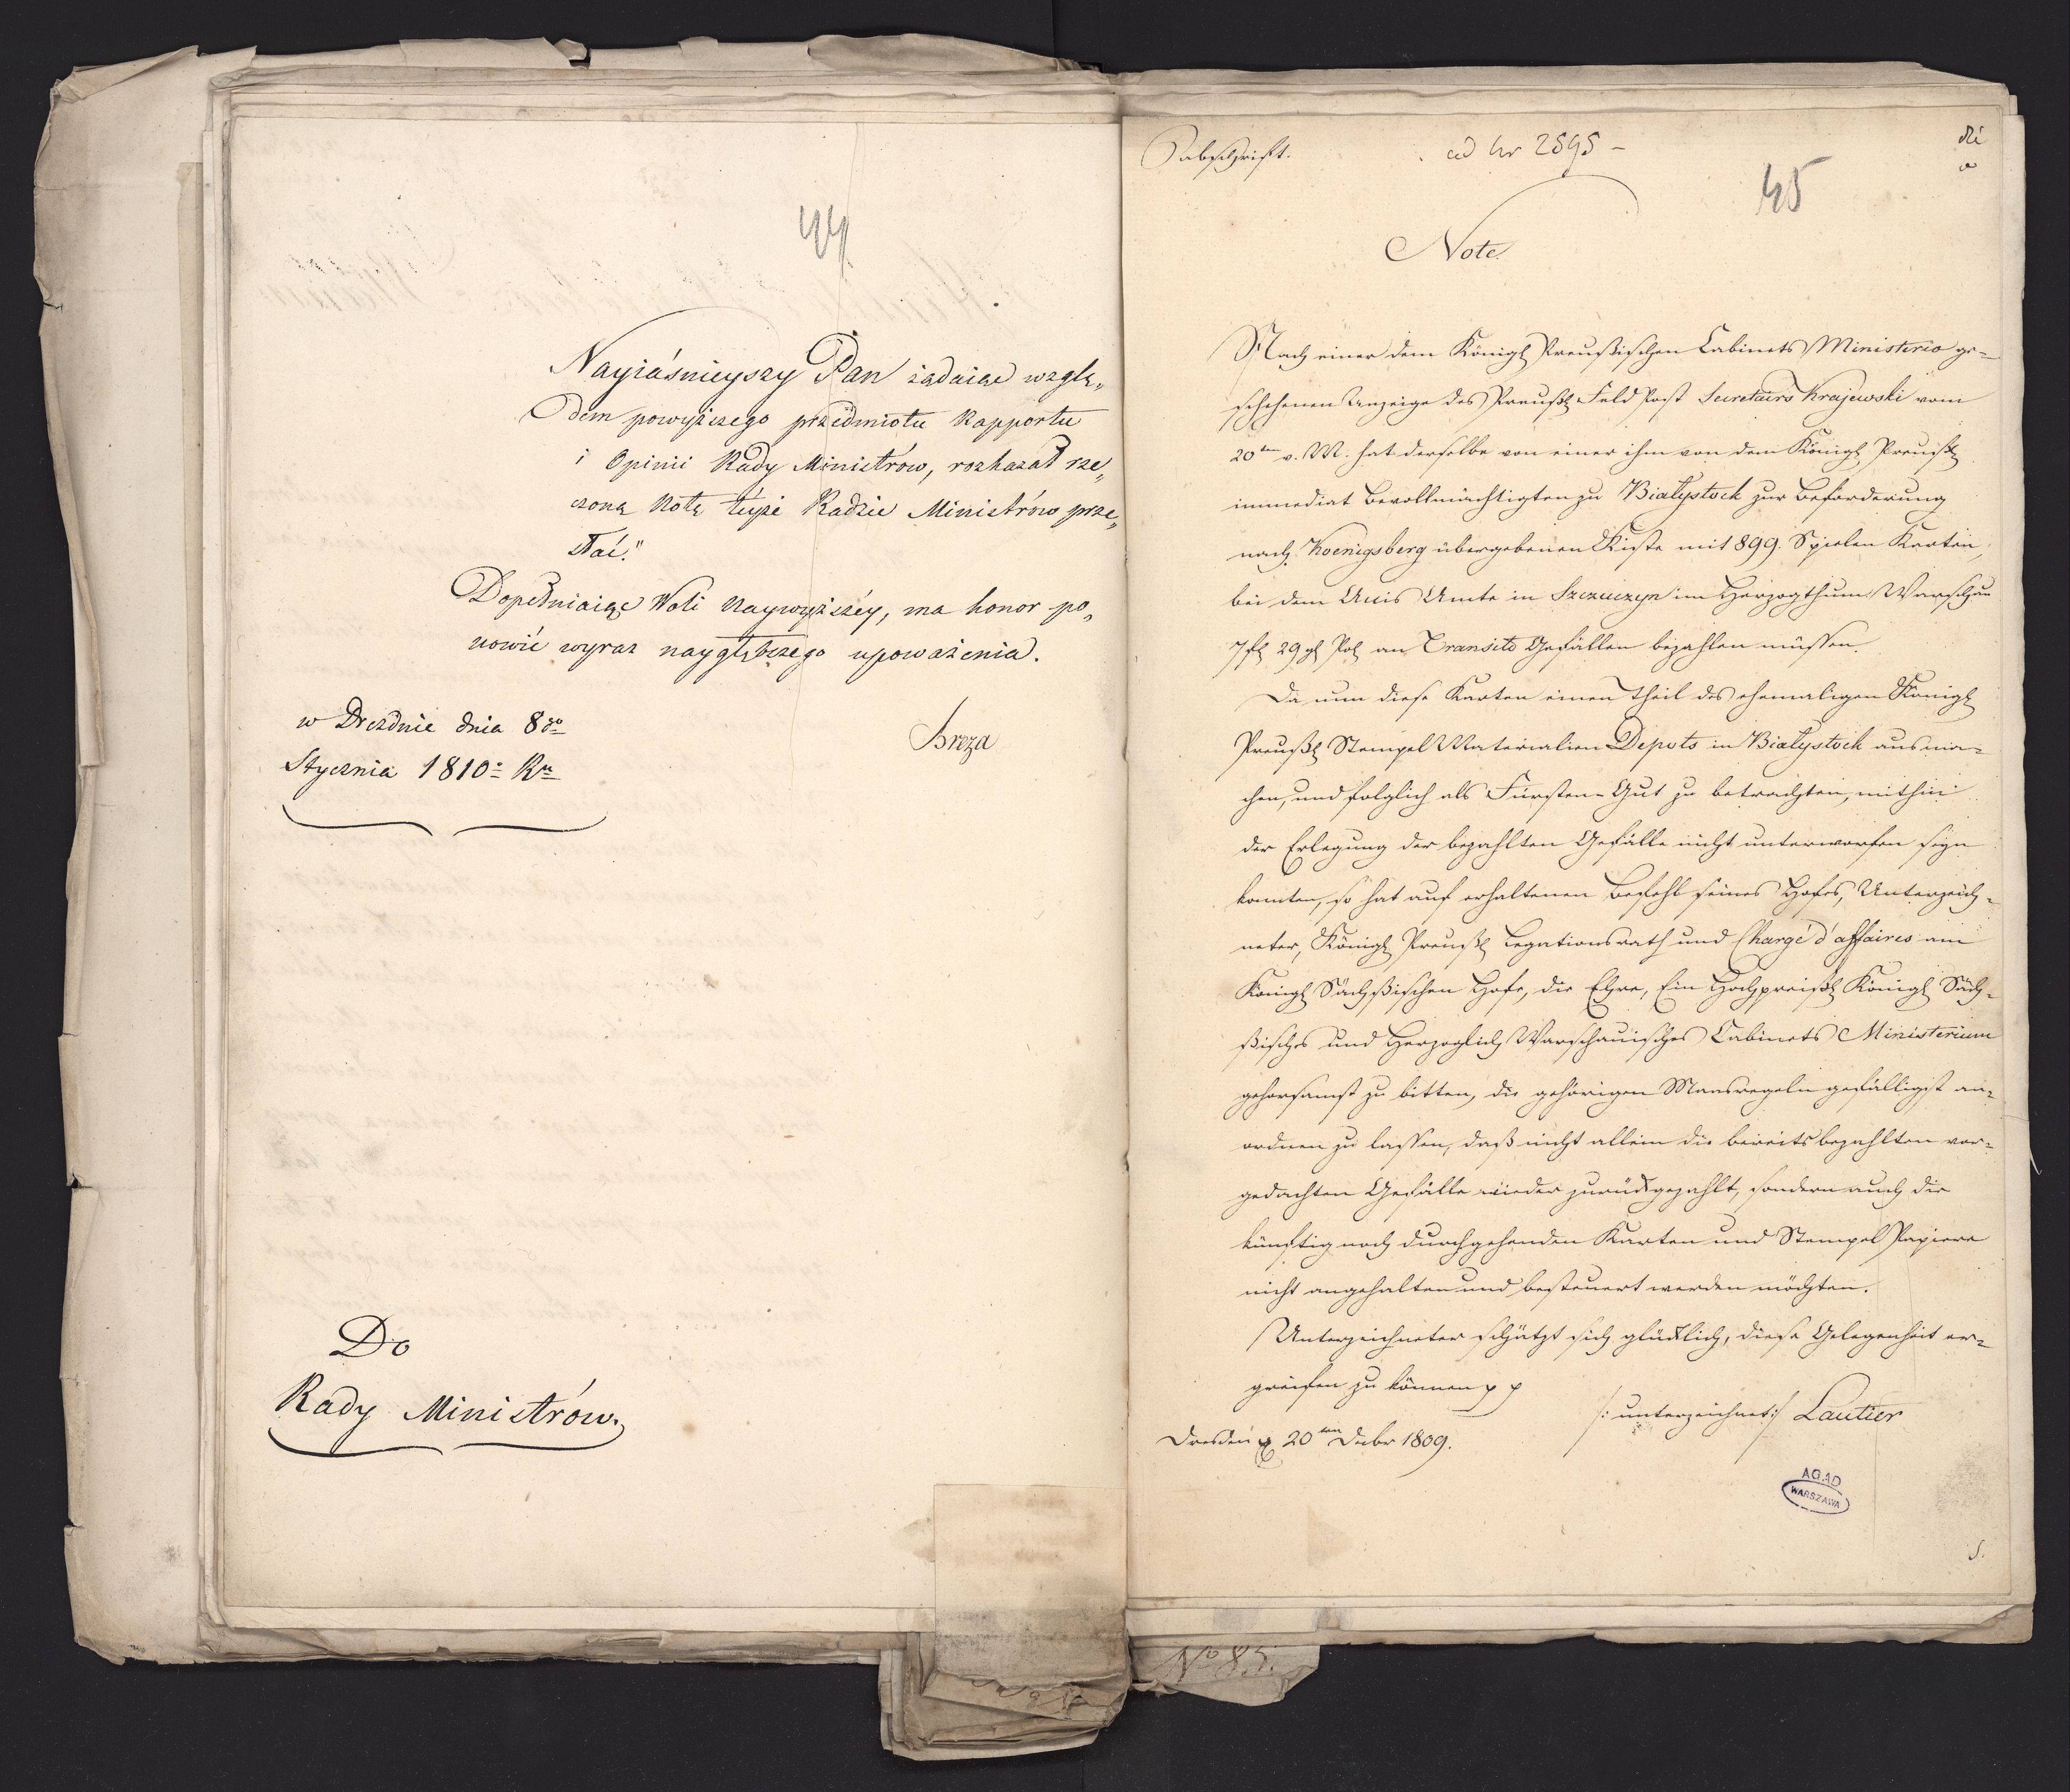 44
Nayiaśnieyszy Pan żądaiąc wzglę„
dem powyższego przedmiotu Rapportu
i Opinii Rady Ministrów, rozkazał rze„
czoną Notę teyże Radzie Ministrów prze„
słać."
Dopełniaiąc Woli Naywyższéy, ma honor po„
nowić wyraz naygłębszego upoważenia.
w Dreznie dnia 8go
Stycznia 1810 Ru
Breza
Do
Rady Ministrów.
Abschrift.
ad Nr 2595 -
45
Note
Nach einer dem Königl Preußischen Cabinets Ministerio ge=
schehenen Anzeige des Preußl Feld Post Secretairs Krajewski vom
20ten v. M. hat derselbe von einer ihm von dem Königl Preußl
immediat Bevollmächtigten zu Bialystock zur Beförderung
nach Koenigsberg übergebenen Kiste mit 899. Spielen Karten,
bei dem Accis Amte in Szczuczyn im Herzogthum Warschau
7 fl 29 gl Pol an Transito Gefällen bezahlen müssen.
Da nun diese Karten einen Theil des ehemaligen Königl
Preußl Stempel Materialien Depots in Bialystock ausma=
chen, und folglich als Fürsten=Gut zu betrachten, mithin
der Erlegung der bezahlten Gefälle nicht unterworfen seyn
konnten, so hat auf erhaltenen Befehl seines Hofes, Unterzeich=
neter, Königl Preußl Legationsrath und Chargé d'affaires am
Königl Sächßischen Hofe, die Ehre, Ein Hochpreißl Königl Säch=
ßisches und Herzoglich Warschauisches Cabinets Ministerium
gehorsamst zu bitten, die gehörigen Maasregeln gefälligst an=
ordnen zu lassen, daß nicht allein die bereits bezahlten vor=
gedachten Gefälle wieder zurückgezahlt, sondern auch die
künftig noch durchgehenden Karten und Stempel Papiere
nicht angehalten und besteuert werden möchten.
Unterzeichneter schätzt sich glücklich, diese Gelegenheit er=
greifen zu können p p
/: unterzeichnet :/ Lautier
Dresden 20ten Decbr 1809.
AGAD
WARSZAWA
No 85.